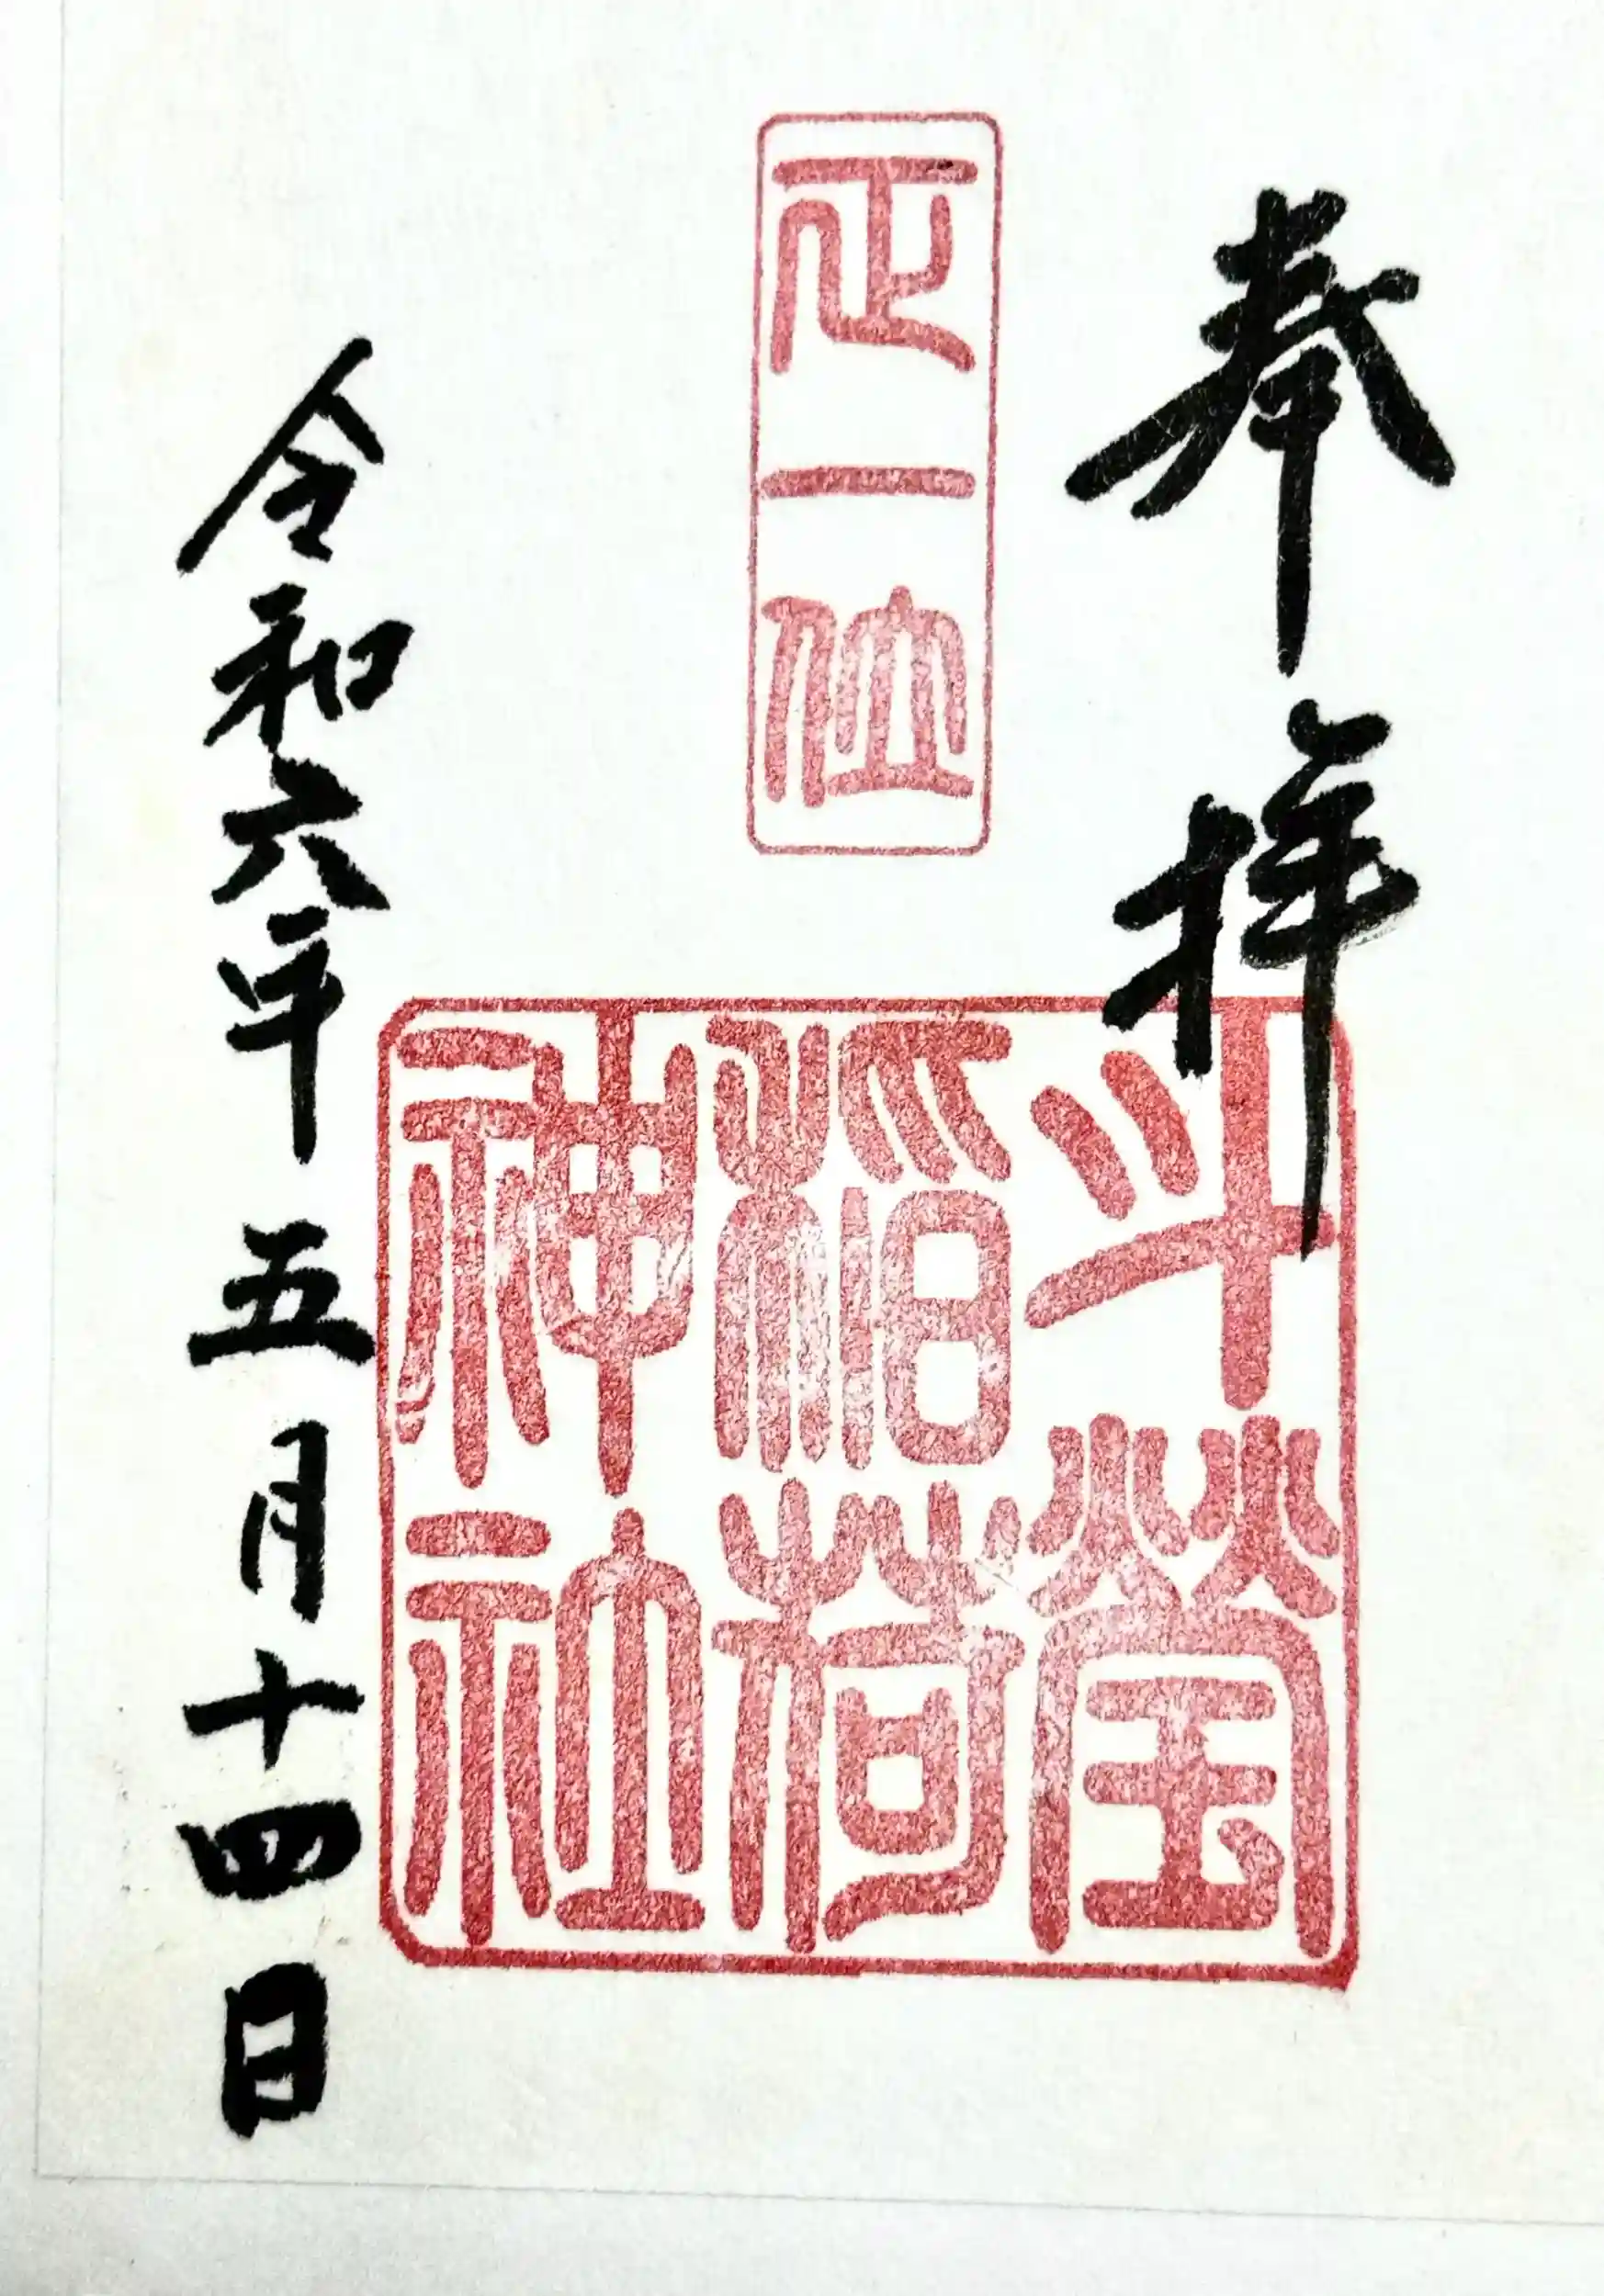 奉拝
正一位
斗瑩
稲荷
神社
令和六年五月十四日